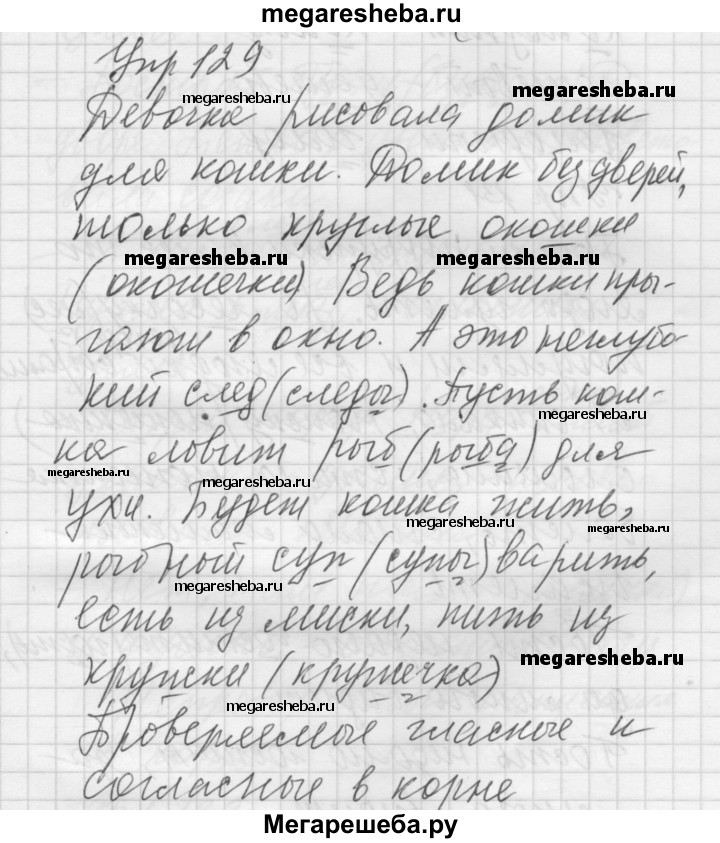 megaresheba.ru
Упр 129
megaresheba.ru
megaresheba.ru
Девочка рисовала домик
для кошки. Домик без дверей,
только круглые окошки
megaresheba.ru
megaresheba.ru
(окошечки) Ведь кошки пры-
гают в окно. А это неглубо-
кий след (следы). Пусть кош-
megaresheba.ru
ка ловит рыб (рыба) для
megaresheba.ru
megaresheba.ru
ухи. Будет кошка жить,
megaresheba.ru
megaresheba.ru
рыбный суп (супы) варить,
megaresheba.ru
есть из миски, пить из
megaresheba.ru
кружки (кружечка)
megaresheba.ru
Проверяемые гласные и
согласные в корне
Мегарешеба.ру